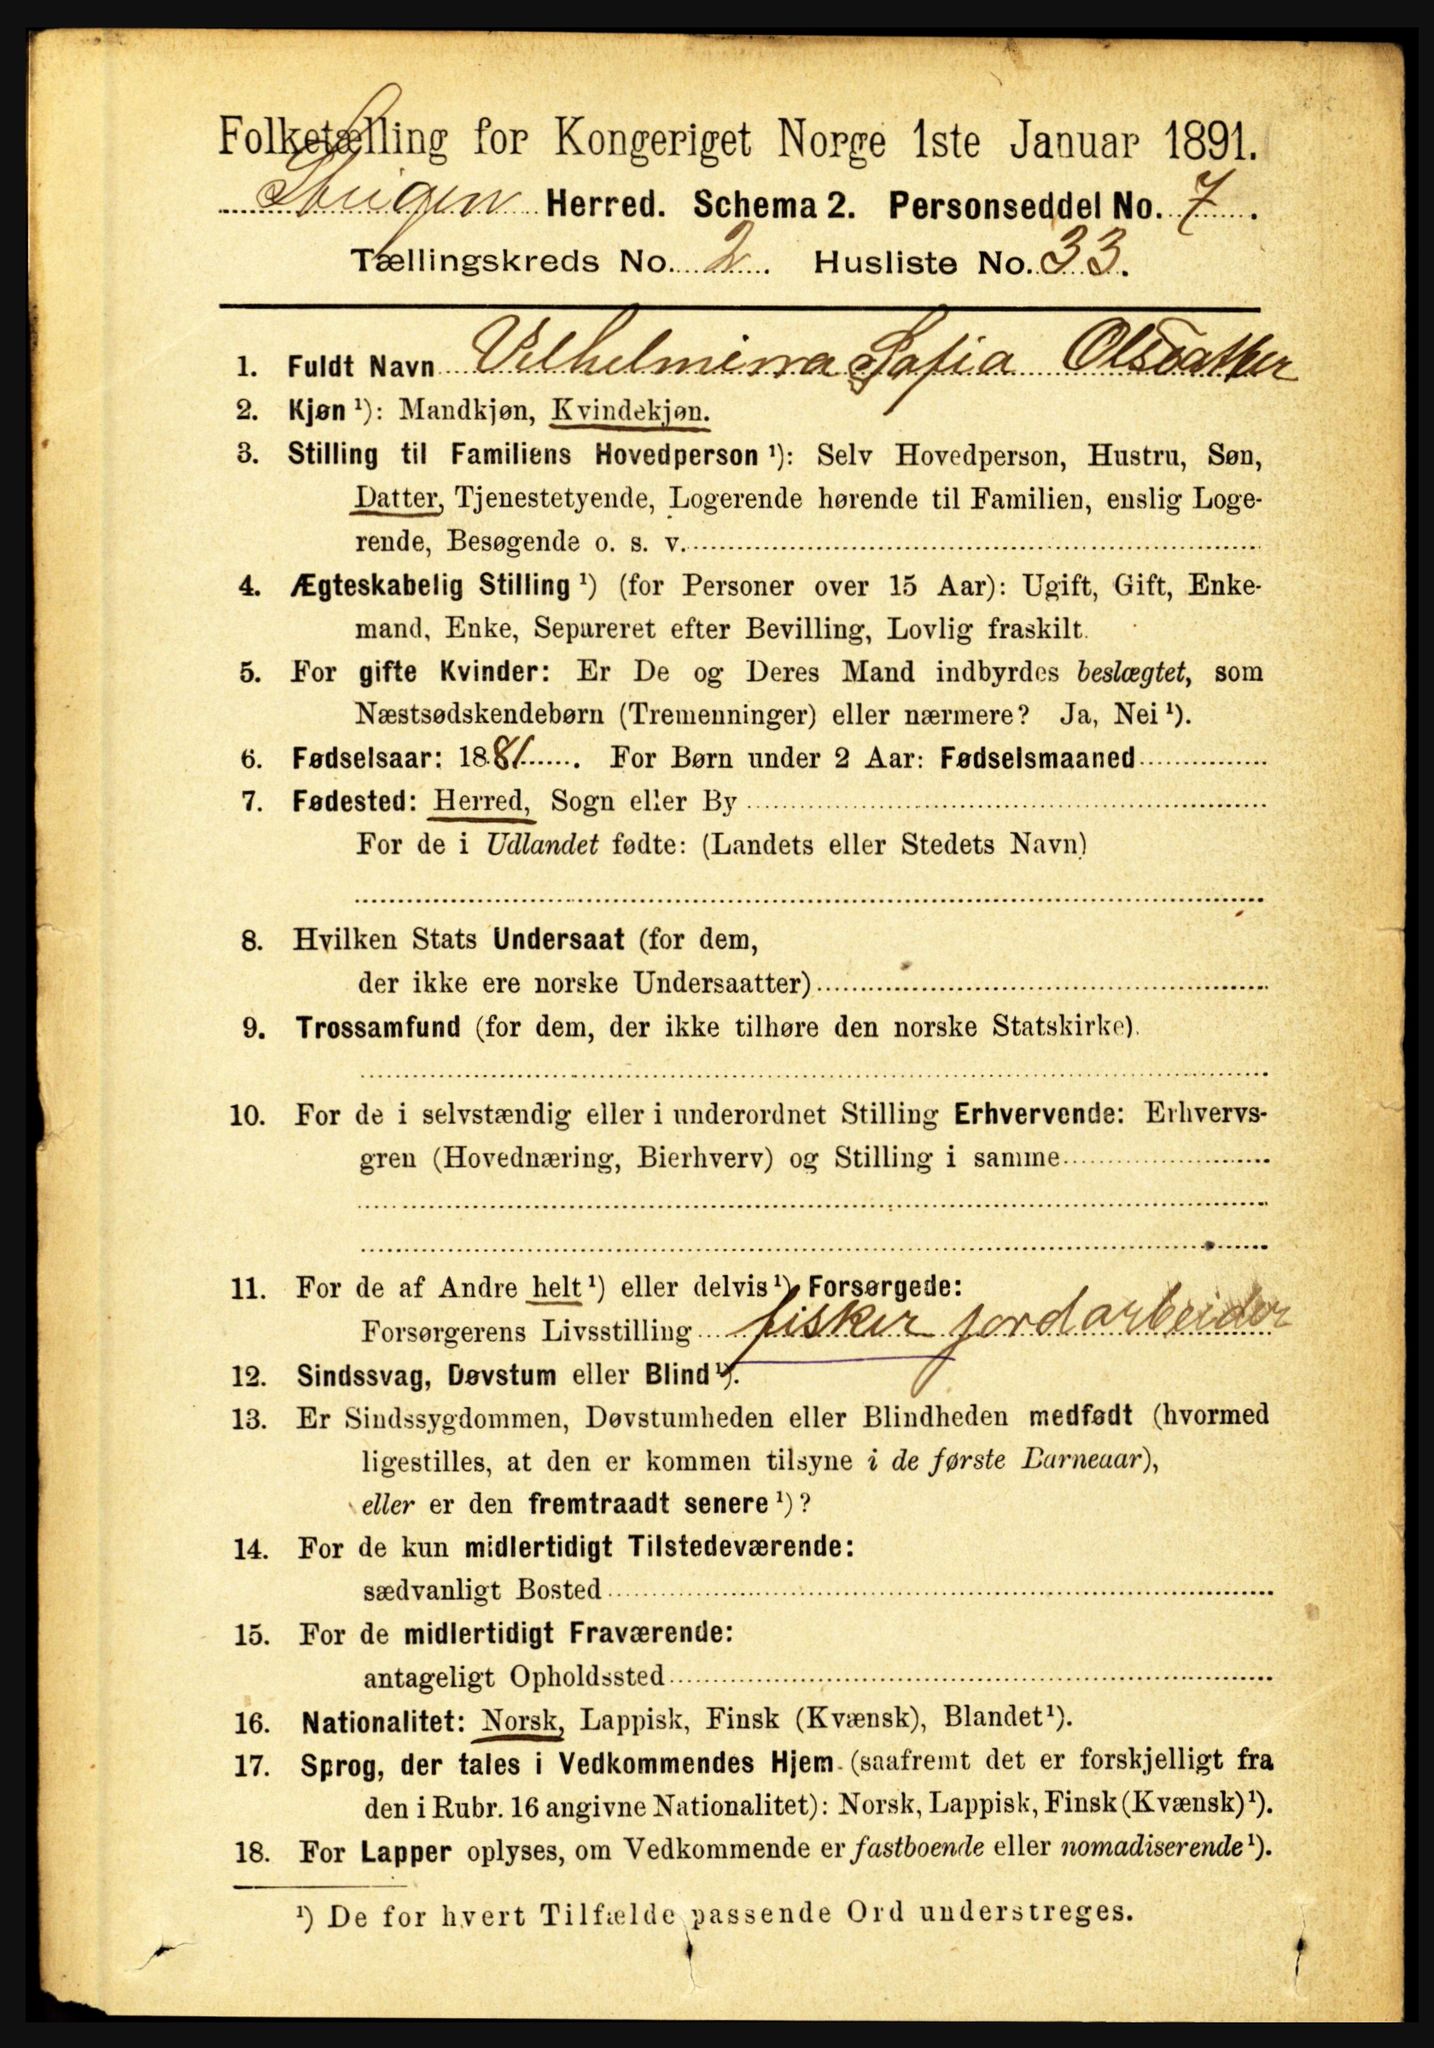 Folketælling for Kongeriget Norge 1ste Januar 1891.
Steigen Herred. Schema 2. Personseddel No. 7.
Tællingskreds No. 2. Husliste No. 33.
1. Fuldt Navn Vilhelmina Sofia Olsdatter
2. Kjøn ¹): Mandkjøn, Kvindekjøn.
3. Stilling til Familiens Hovedperson ¹): Selv Hovedperson, Hustru, Søn,
Datter, Tjenestetyende, Logerende hørende til Familien, enslig Loge-
rende, Besøgende o. s. v.
4. Ægteskabelig Stilling ¹) (for Personer over 15 Aar): Ugift, Gift, Enke-
mand, Enke, Separeret efter Bevilling, Lovlig fraskilt.
5. For gifte Kvinder: Er De og Deres Mand indbyrdes beslægtet, som
Næstsødskendebørn (Tremenninger) eller nærmere? Ja, Nei ¹).
6. Fødselsaar: 1881. For Børn under 2 Aar: Fødselsmaaned
7. Fødested: Herred, Sogn eller By
For de i Udlandet fødte: (Landets eller Stedets Navn)
8. Hvilken Stats Undersaat (for dem,
der ikke ere norske Undersaatter)
9. Trossamfund (for dem, der ikke tilhøre den norske Statskirke).
10. For de i selvstændig eller i underordnet Stilling Erhvervende: Erhvervs-
gren (Hovednæring, Bierhverv) og Stilling i samme
11. For de af Andre helt ¹) eller delvis ¹) Forsørgede:
Forsørgerens Livsstilling fisker jordarbeider
12. Sindssvag, Døvstum eller Blind ¹).
13. Er Sindssygdommen, Døvstumheden eller Blindheden medfødt (hvormed
ligestilles, at den er kommen tilsyne i de første Barneaar),
eller er den fremtraadt senere ¹)?
14. For de kun midlertidigt Tilstedeværende:
sædvanligt Bosted
15. For de midlertidigt Fraværende:
antageligt Opholdssted
16. Nationalitet: Norsk, Lappisk, Finsk (Kvænsk), Blandet ¹).
17. Sprog, der tales i Vedkommendes Hjem (saafremt det er forskjelligt fra
den i Rubr. 16 angivne Nationalitet): Norsk, Lappisk, Finsk (Kvænsk) ¹).
18. For Lapper oplyses, om Vedkommende er fastboende eller nomadiserende ¹).
¹) De for hvert Tilfælde passende Ord understreges.